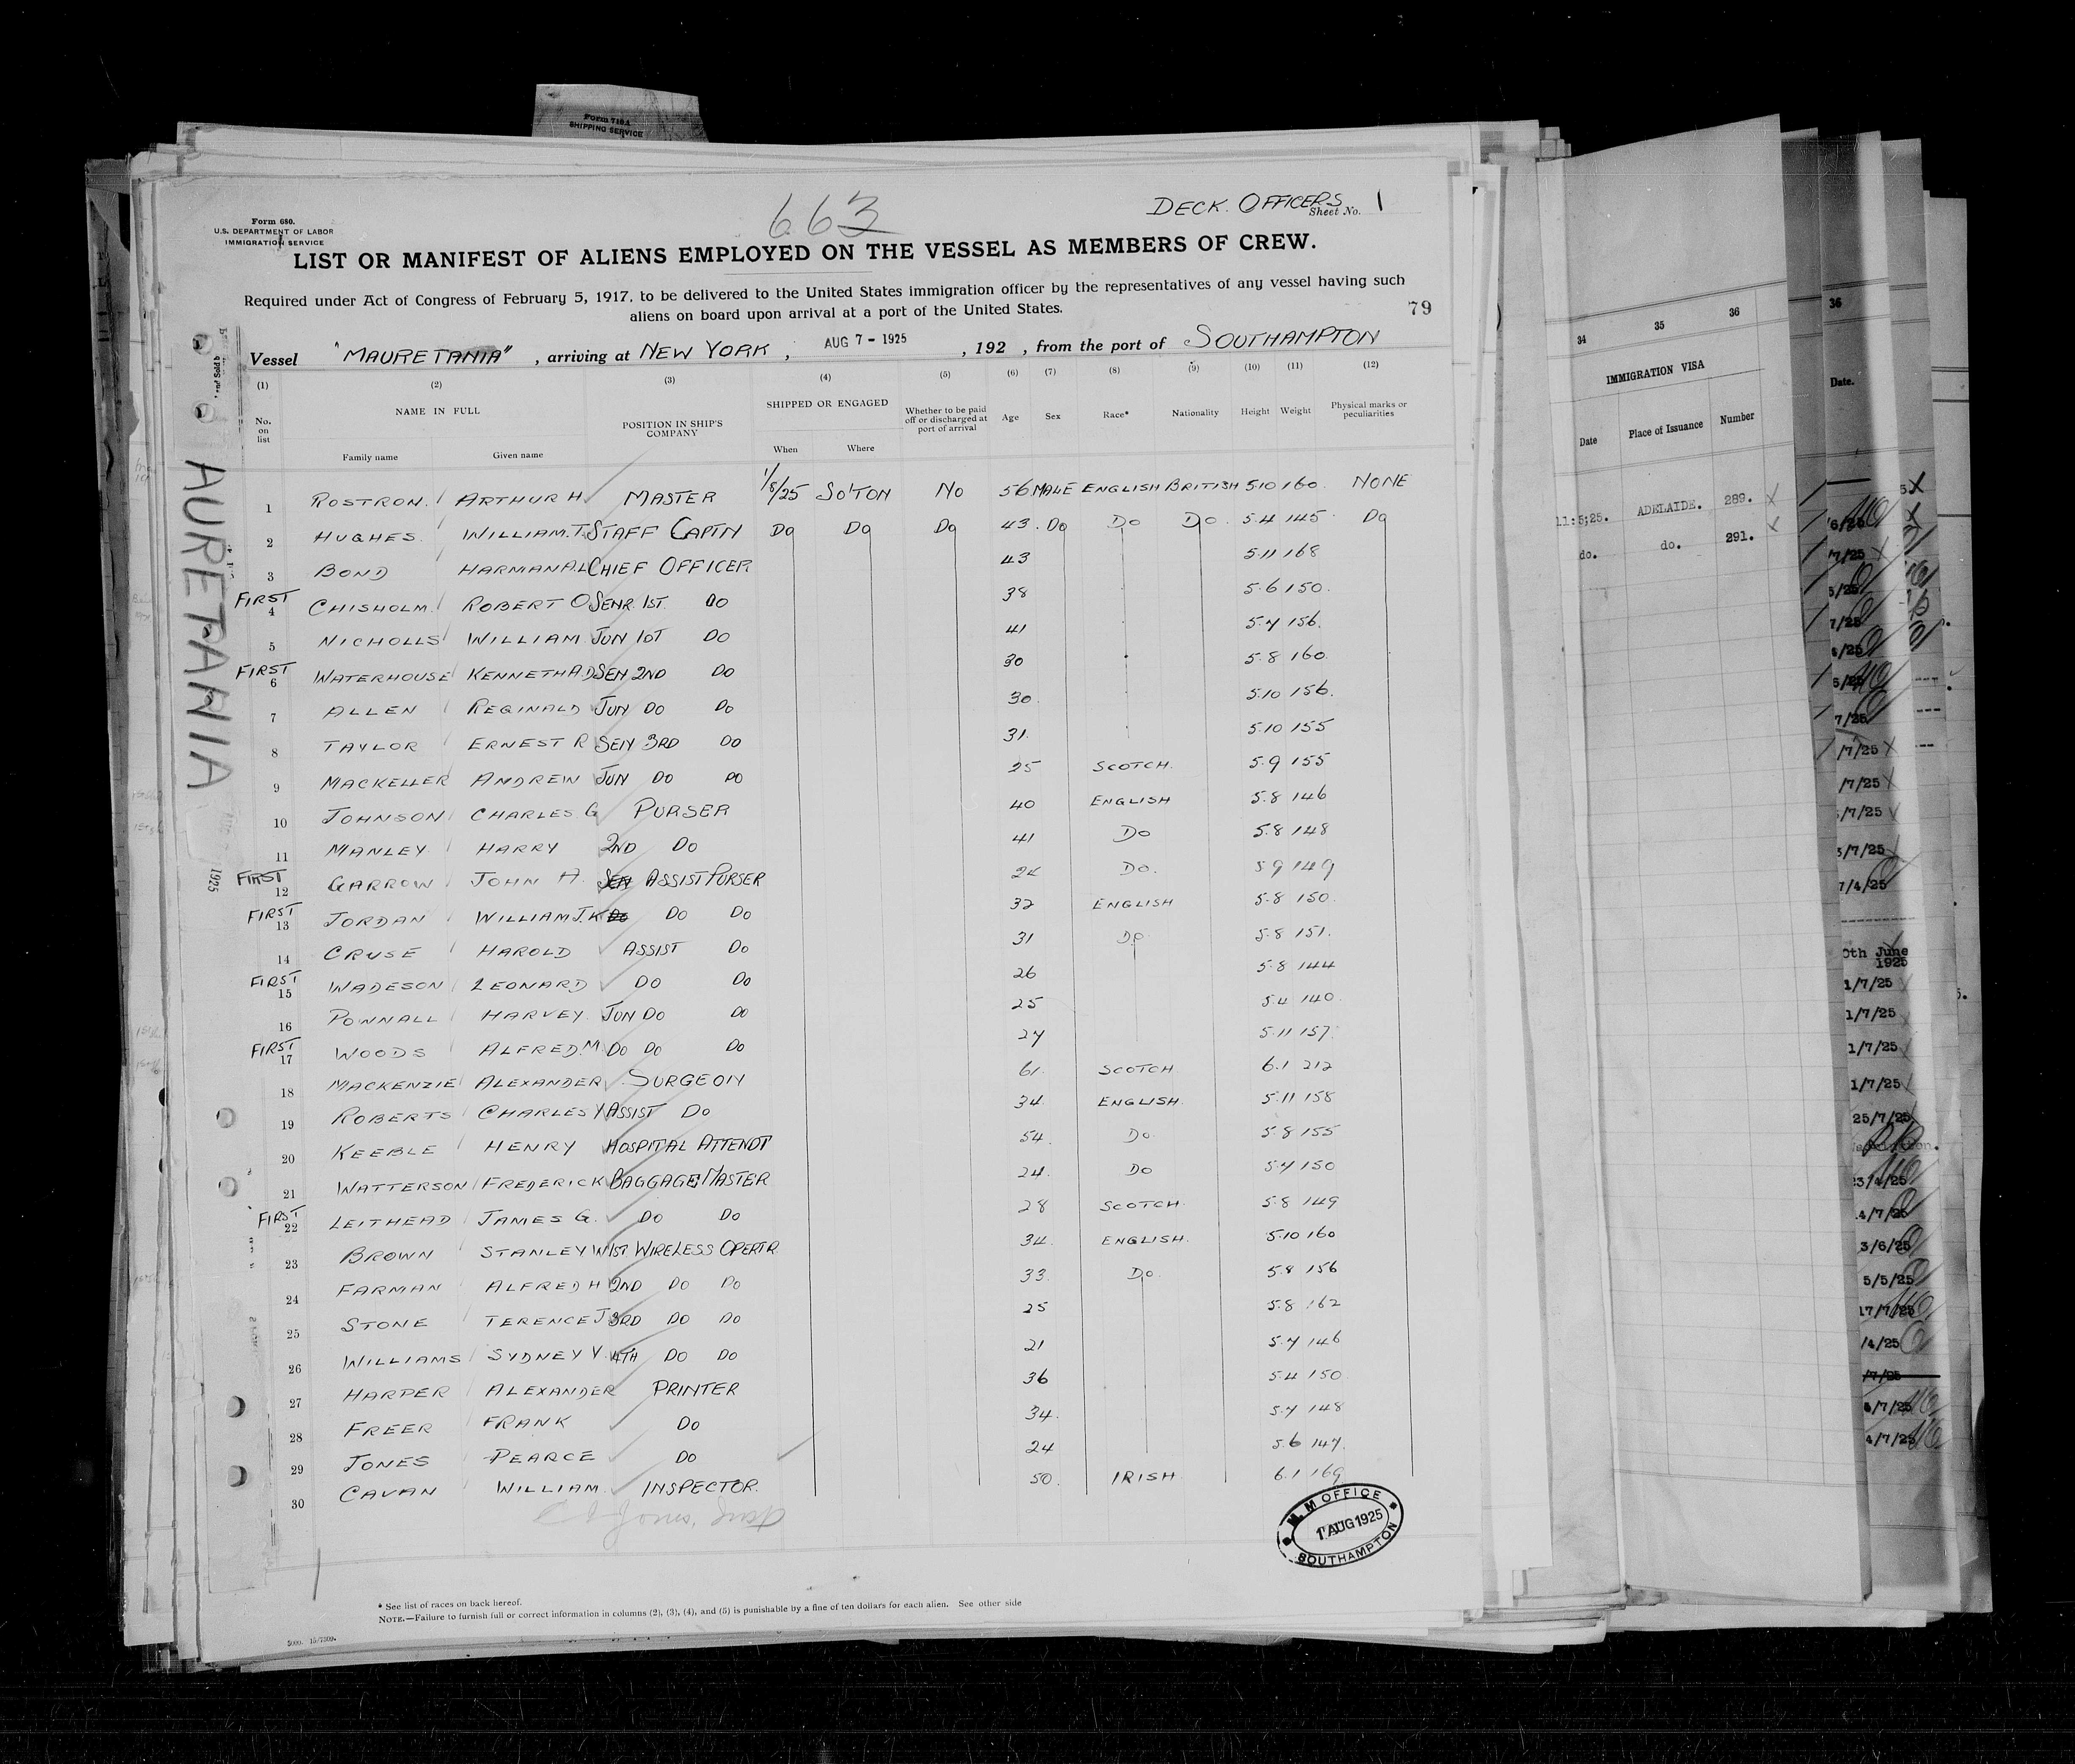 Form 710A
SHIPPING SERVICE
663
DECK. OFFICERS
Sheet No. 1
Form 680.
U.S. DEPARTMENT OF LABOR
IMMIGRATION SERVICE
LIST OR MANIFEST OF ALIENS EMPLOYED ON THE VESSEL AS MEMBERS OF CREW.
Required under Act of Congress of February 5, 1917, to be delivered to the United States immigration officer by the representatives of any vessel having such
aliens on board upon arrival at a port of the United States.
79
Vessel "MAURETANIA", arriving at NEW YORK, AUG 7 - 1925, 192 , from the port of SOUTHAMPTON
(1) (2) (3) (4) (5) (6) (7) (8) (9) (10) (11) (12)
No. on list NAME IN FULL POSITION IN SHIP'S COMPANY SHIPPED OR ENGAGED Whether to be paid off or discharged at port of arrival Age Sex Race* Nationality Height Weight Physical marks or peculiarities
Family name Given name When Where
1 ROSTRON. ARTHUR H. MASTER 1/8/25 SO'TON NO 56 MALE ENGLISH BRITISH 5.10 160. NONE
2 HUGHES. WILLIAM.T. STAFF CAPTN DO DO DO 43. DO DO DO. 5.4 145 DO
3 BOND HARMAN A.L CHIEF OFFICER 43 5.11 168
FIRST 4 CHISHOLM. ROBERT O SENR. 1ST. DO 38 5.6 150.
5 NICHOLLS WILLIAM JUN 1ST DO 41 5.7 156.
FIRST 6 WATERHOUSE KENNETH A.D SEN 2ND DO 30 5.8 160.
7 ALLEN REGINALD JUN DO DO 30. 5.10 156.
8 TAYLOR ERNEST R SEN 3RD DO 31. 5.10 155
9 MACKELLER ANDREW JUN DO DO 25 SCOTCH. 5.9 155
10 JOHNSON CHARLES G PURSER 40 ENGLISH 5.8 146
11 MANLEY. HARRY 2ND DO 41 DO 5.8 148
FIRST 12 GARROW JOHN A. SEN ASSIST PURSER 24 DO. 5.9 149
FIRST 13 JORDAN WILLIAM J.K DO DO DO 32 ENGLISH 5.8 150.
14 CRUSE HAROLD ASSIST DO 31 DO 5.8 151.
FIRST 15 WADESON LEONARD DO DO 26 5.8 144
16 POWNALL HARVEY JUN DO DO 25 5.4 140.
FIRST 17 WOODS ALFRED.M DO DO DO 27 5.11 157.
18 MACKENZIE ALEXANDER SURGEON 61. SCOTCH 6.1 212
19 ROBERTS CHARLES Y ASSIST DO 34 ENGLISH. 5.11 158
20 KEEBLE HENRY HOSPITAL ATTENDT 54. DO 5.8 155
21 WATTERSON FREDERICK BAGGAGE MASTER 24. DO 5.7 150
FIRST 22 LEITHEAD JAMES G. DO DO 28 SCOTCH. 5.8 149
23 BROWN STANLEY W 1ST. WIRELESS OPERTR 34. ENGLISH. 5.10 160
24 FARMAN ALFRED H 2ND DO DO 33. DO. 5.8 156
25 STONE TERENCE J 3RD DO DO 25 5.8 162
26 WILLIAMS SYDNEY V. 4TH DO DO 21 5.7 146
27 HARPER ALEXANDER PRINTER 36 5.4 150
28 FREER FRANK DO 34. 5.7 148
29 JONES PEARCE DO 24 5.6 147.
30 CAVAN WILLIAM. INSPECTOR. 50. IRISH. 6.1 169
M.M OFFICE
1 AUG 1925
SOUTHAMPTON
* See list of races on back hereof.
NOTE.—Failure to furnish full or correct information in columns (2), (3), (4), and (5) is punishable by a fine of ten dollars for each alien. See other side
AURETANIA
1925
34 35 36
IMMIGRATION VISA
Date Place of Issuance Number
11:5;25. ADELAIDE. 289. X
do. do. 291. X
36
Date.
/7/25 X
/7/25 X
0th June
1925
1/7/25
1/7/25
1/7/25
1/7/25
25/7/25
3/6/25
5/5/25
17/7/25
/4/25
/7/25
4/7/25